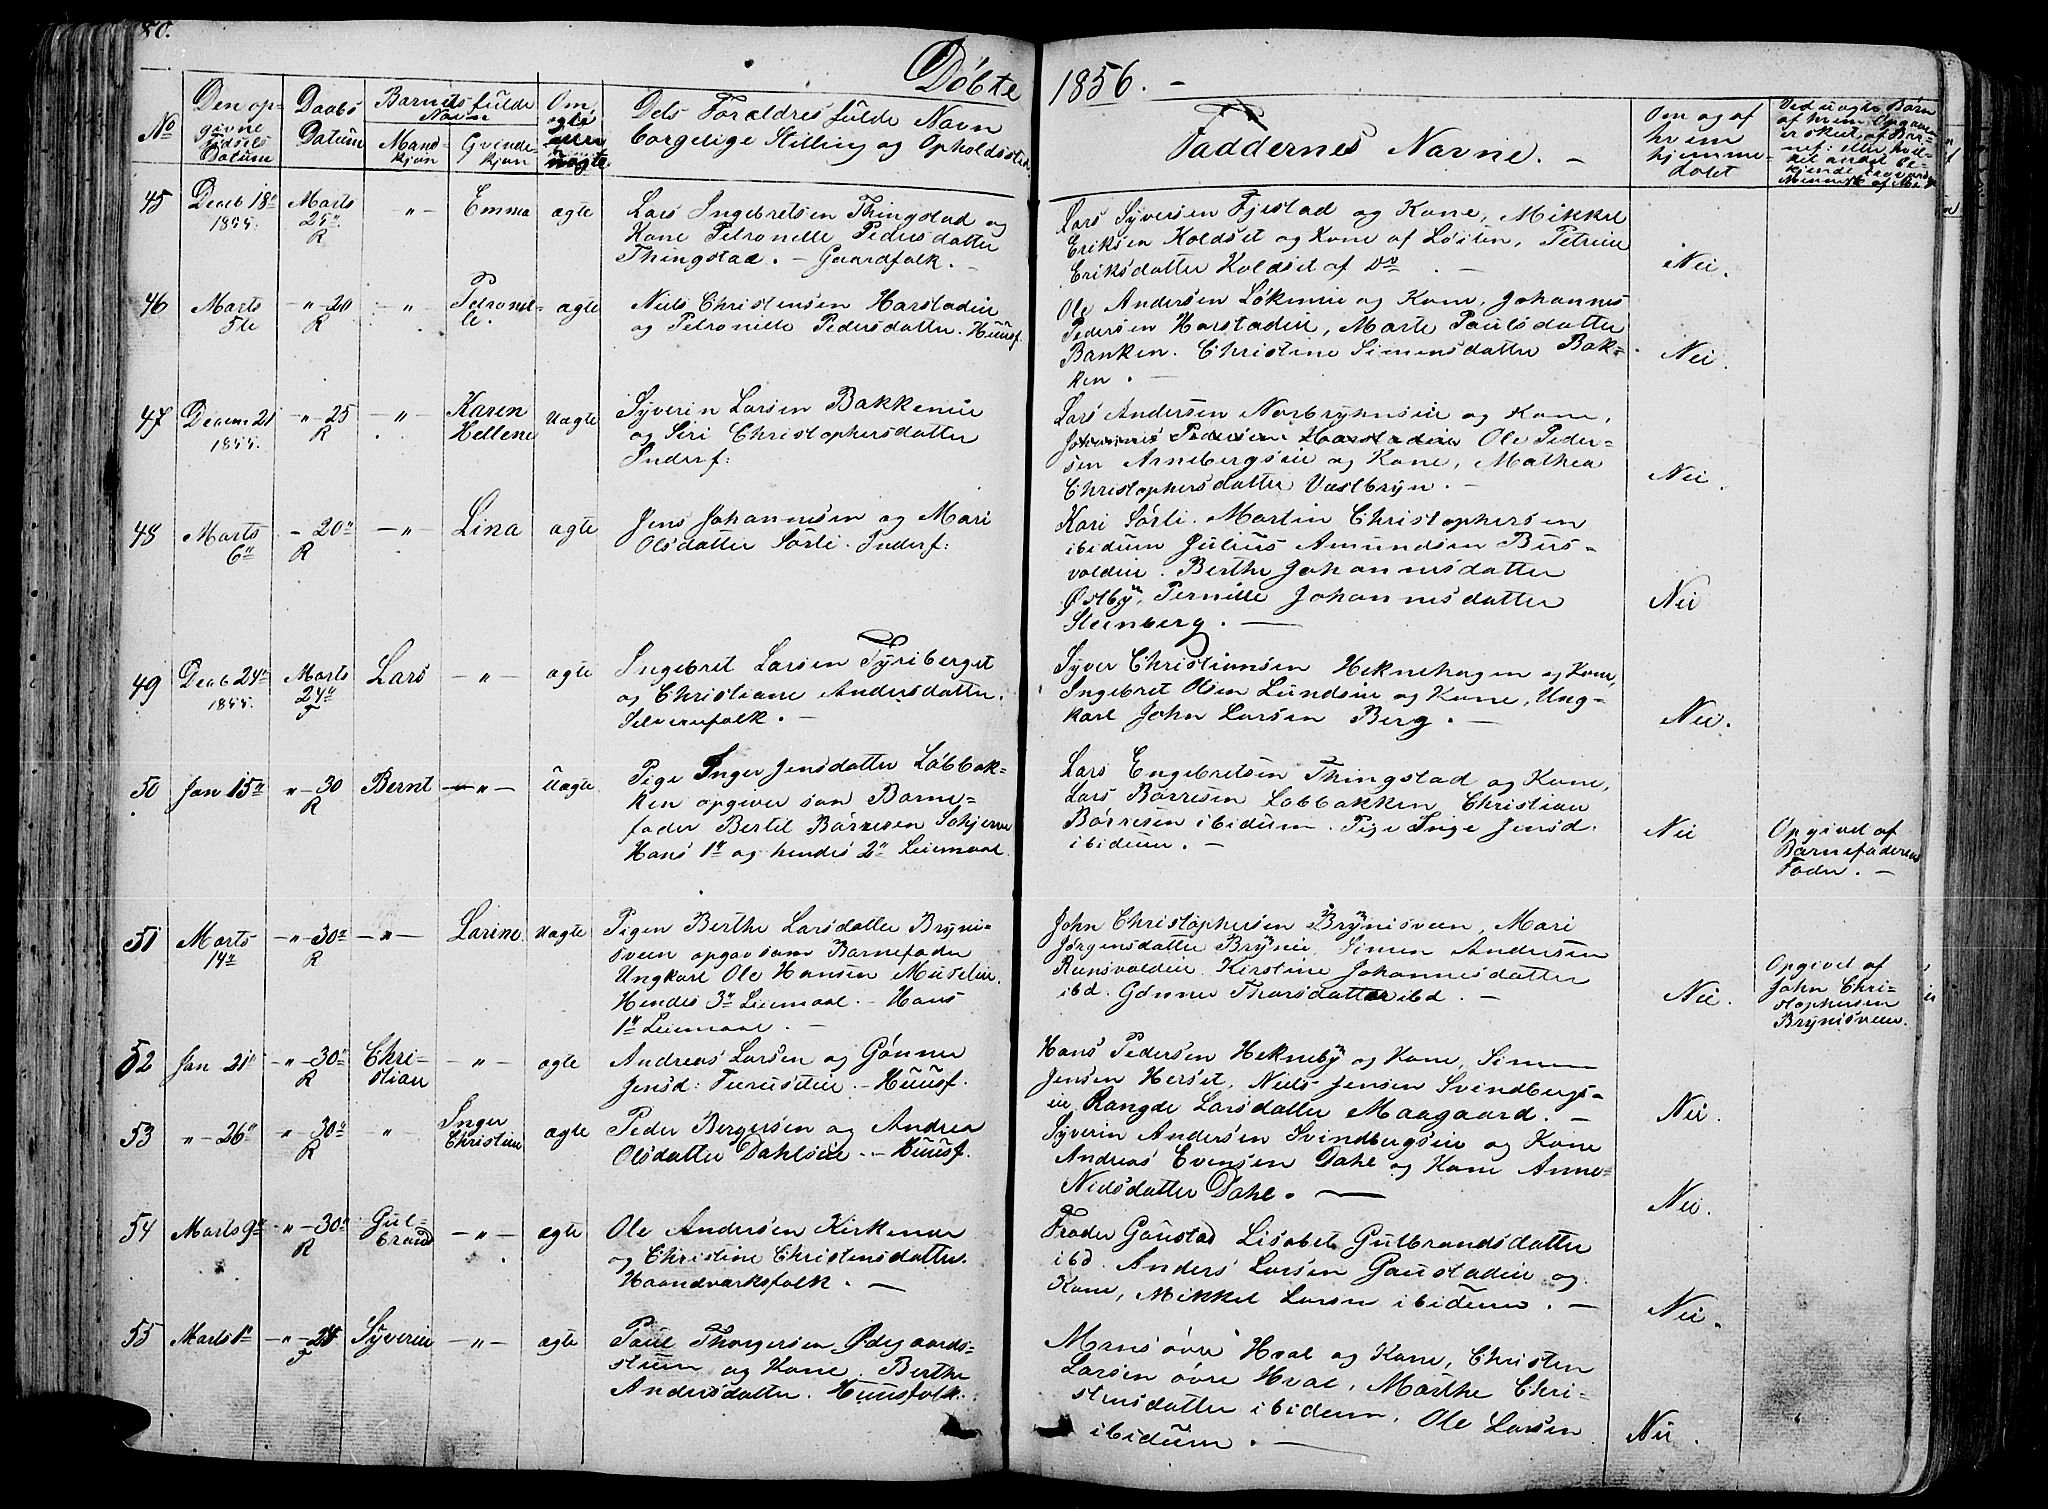 Döbte 1856. —
No
Den op-
givne
Födsels
Datum
Daabs
Datum
Barnets fulde
Navn
Mand-
kjön
Qvinde-
kjön
Om
ægte
eller
uægte
Dets Forældres fulde Navn
borgelige Stilling og Opholdssted
Faddernes Navne. —
Om og af
hvem
hjemme-
döbt
45 Decb 18" Marts —"— Emma ægte Lars Ingebretsen Thingstad og
1855. 25" Kone Petronelle Pedersdatter
R Thingstad. — Gaardfolk. —
Lars Syversen Fjestad og Kone, Mikkel
Eriksen Koldset og Kone af Löiten, Petrine
Eriksdatter Koldset af Do. — Nei.
46 Marts —"—20 —"— Petronel- ægte Niels Christensen Harstadeie
5te R le. og Petronelle Pedersdatter. Huusf.
Ole Andersen Lökeneie og Kone, Johannes
Pedersen Harstadeie, Marte Paulsdatter
Banken. Christine Simensdatter Bak-
ken. — Nei.
47 Decem 21 "—25 —"— Karen Uægte Syverin Larsen Bakkeneie
1855. R Hellene og Siri Christophersdatter
Inderf:
Lars Andersen Norbryhnseie og Kone,
Johannes Pedersen Haarstadeie Ole Peder-
sen Arnebergseie og Kone, Mathea
Christophersdatter Vestbryn. — Nei.
48 Marts — 20" —"— Lina ægte Jens Johannesen og Mari
6" R Olsdatter Sörli. Inderf:
Kari Sörli. Martin Christophersen
ibidum Julius Amundsen Bus-
voldeie. Berthe Johannesdatter
Östby, Pernille Johannesdatter
Steenberg. — Nei
49 Decb 24" Marts Lars —"— ægte Ingebret Larsen Fyriberget
1855. 24" og Christiane Andersdatter.
F Selveierfolk. —
Syver Christiansen Heknehagen og Kone,
Ingebret Olsen Lundseie og Kone, Ung-
karl John Larsen Berg. — Nei.
50 Jan 15" "—30 Bernt —"— Uægte Pige Inger Jensdatter Löbbak-
R ken opgiver son Barne-
fader Bertil Börresen Sohjerne
Hans 1" og hendes 2" Leiemaal.
Lars Engebretsen Thingstad og Kone,
Lars Börresen Löbbakken, Christian
Börresen ibidum. Pige Inge Jensd.
ibidum. — Nei
Opgivet af
Barnefaderens
Fader. —
51 Marts —"—30" —"— Larine Uægte Pigen Berthe Larsdatter Bryni-
14" R sveen opgav som Barnefader
Ungkarl Ole Hansen Muselie.
Hendes 3" Leiemaal. — Hans
1" Leiemaal. —
John Christophersen Brynisveen, Mari
Jörgensdatter Bryneie Simen Andersen
Runsvoldeie. Kirstine Johannesdatter
ibd. Gönner Thorsdatter ibd. — Nei.
Opgivet af
John Chri-
stophersen
Brynisveen.
52 Jan 21" "—30" Chri- —"— ægte Andreas Larsen og Gönner
R stian Jensd: Furuseteie. — Huusf.
Hans Pedersen Hekneby og Kone, Simen
Jensen Herset, Niels Jensen Svindbergs-
eie Rangde Larsdatter Maagaard. — Nei.
53 "—26" "—30" " Inger ægte Peder Bergersen og Andrea
R Christine Olsdatter Dahlseie. — Huusf.
Syverin Andersen Svindbergseie og Kone
Andreas Evensen Dahl og Kone Anne
Nielsdatter Dahl. — Nei.
54 Marts 9" "—30" Gul- —"— ægte Ole Andersen Kirkener
R brand og Christine Christensdatter.
Haandværksfolk. —
Frader Gaustad Lisabet Gulbrandsdatter
ibd. Anders Larsen Gaustadeie og
Kone, Mikkel Larsen ibidum. — Nei.
55 Marts 1" —"—24 Syverin —"— ægte Paul Thorgersen Ödegaards-
F stuen og Kone Berthe
Andersdatter. Huusfolk.
Mons övre Hval og Kone, Christen
Larsen övre Hval, Marthe Chri-
stensdatter ibidum, Ole Larsen
ibidum. — Nei.